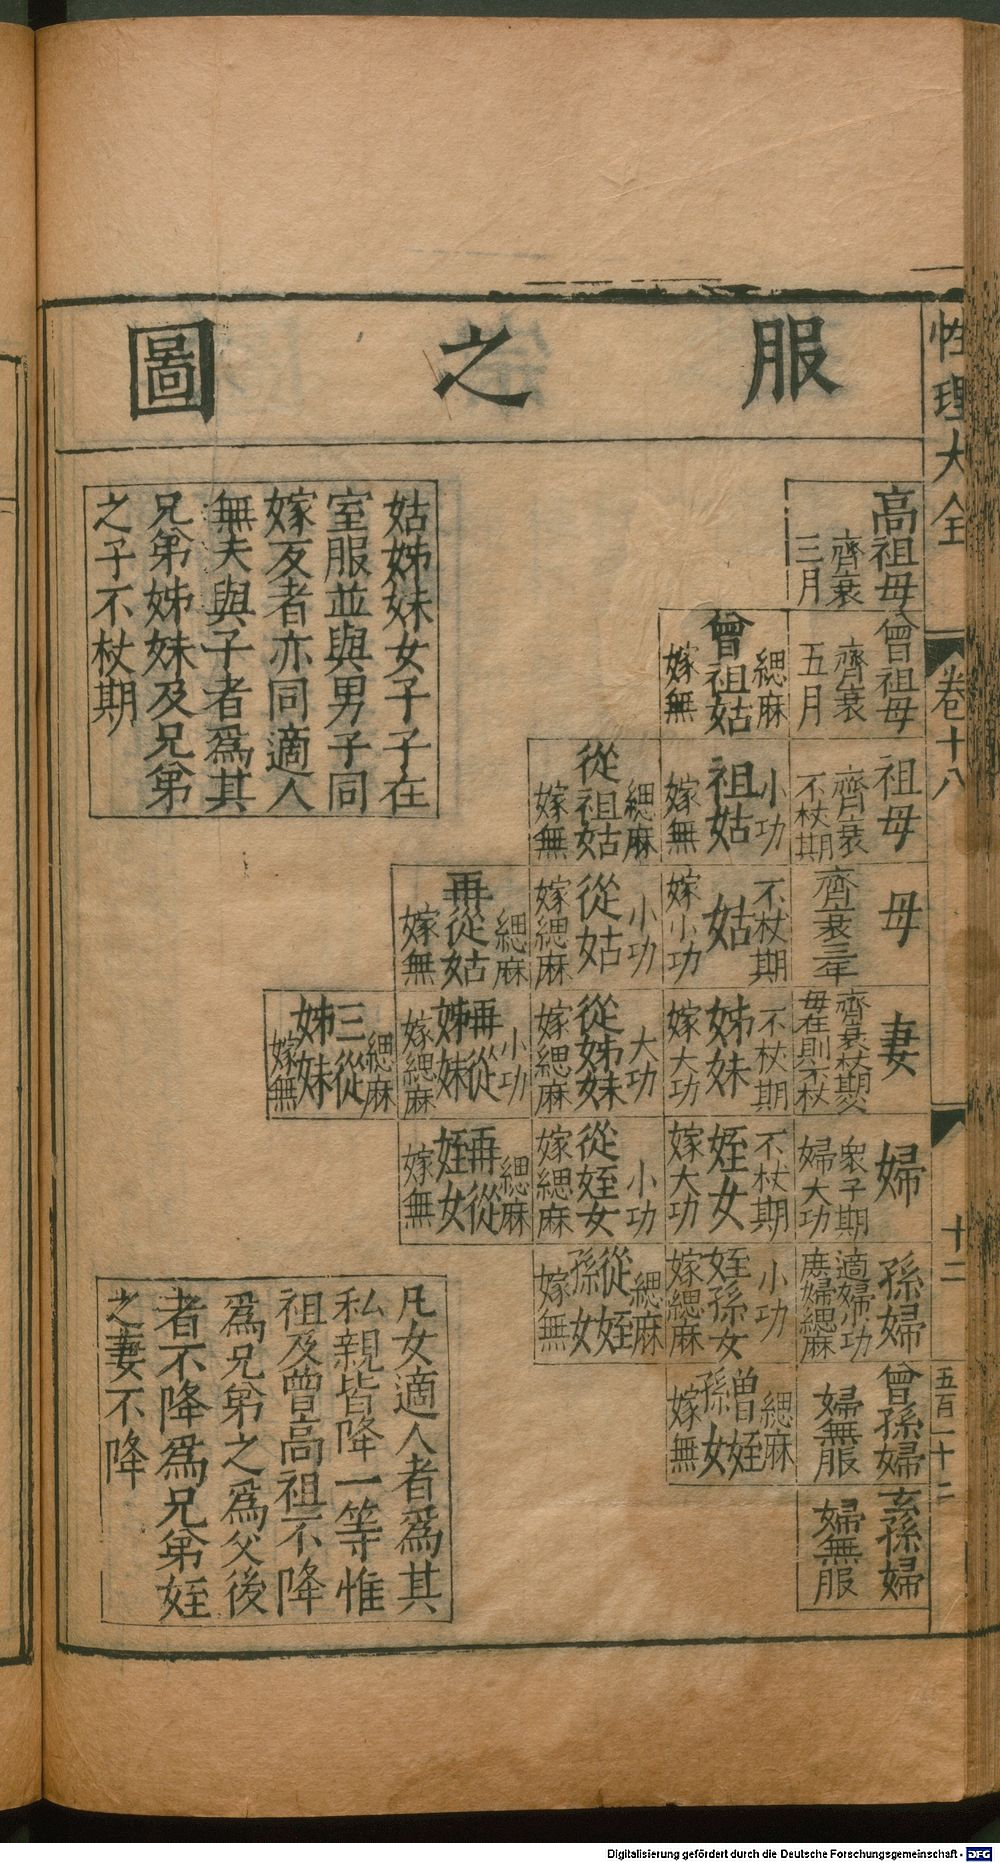 性理大全
卷十八
十二
五百一十二
服之圖
高祖母
齊衰
三月
曾祖母
齊衰
五月
緦麻
曾祖姑
嫁無
祖母
齊衰
不杖期
小功
祖姑
嫁無
緦麻
從祖姑
嫁無
母
齊衰三年
不杖期
姑
嫁小功
小功
從姑
嫁緦麻
緦麻
再從姑
嫁無
妻
齊衰杖期父
母在則不杖
不杖期
姊妹
嫁大功
大功
從姊妹
嫁緦麻
小功
再從
姊妹
嫁緦麻
緦麻
三從
姊妹
嫁無
婦
衆子期
婦大功
不杖期
姪女
嫁大功
小功
從姪女
嫁緦麻
緦麻
再從
姪女
嫁無
孫婦
適婦小功
庶婦緦麻
小功
姪孫女
嫁緦麻
緦麻
從姪
孫女
嫁無
曾孫婦
婦無服
緦麻
曾姪
孫女
嫁無
玄孫婦
婦無服
姑姊妹女子子在
室服並與男子同
嫁反者亦同適人
無夫與子者爲其
兄弟姊妹及兄弟
之子不杖期
凡女適人者爲其
私親皆降一等惟
祖及曾高祖不降
爲兄弟之爲父後
者不降爲兄弟姪
之妻不降
Digitalisierung gefördert durch die Deutsche Forschungsgemeinschaft - DFG